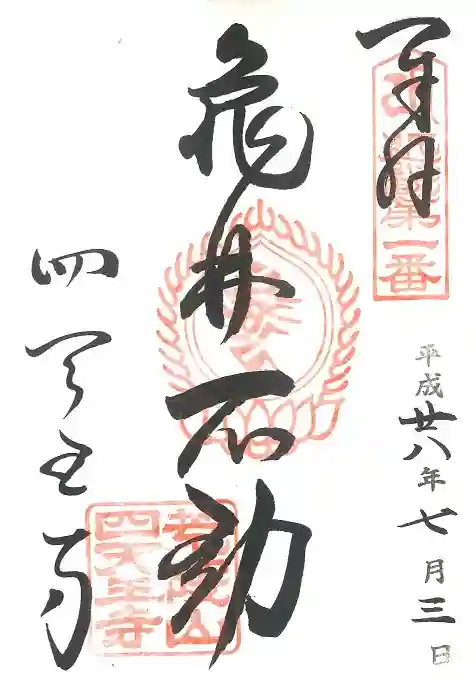 奉拝
平成廿八年七月三日
亀井不動
四天王寺
第一番
荒陵山
四天王寺